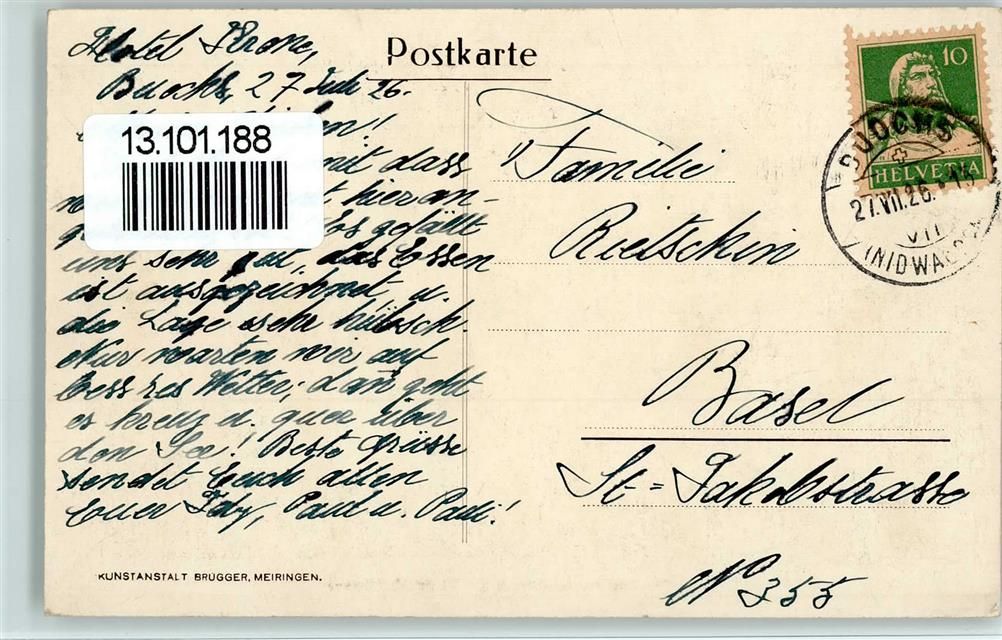 Postkarte
Hotel Krone,
Buochs, 27 Juli 26.
13.101.188
mit dass
hier an-
gefällt
uns sehr gut, das Essen
ist ausgezeichnet u.
die Lage sehr hübsch.
Nur warten wir auf
besseres Wetter, dan geht
es kreuz u. quer über
den See! Beste Grüsse
sendet Euch allen
Euer Paul u. Pauli!
KUNSTANSTALT BRÜGGER, MEIRINGEN.
10
HELVETIA
BUOCHS
27.VII.26.
VII
(NIDWALDEN)
Familie
Rietschin
Basel
St=Jakobstrasse
No 355